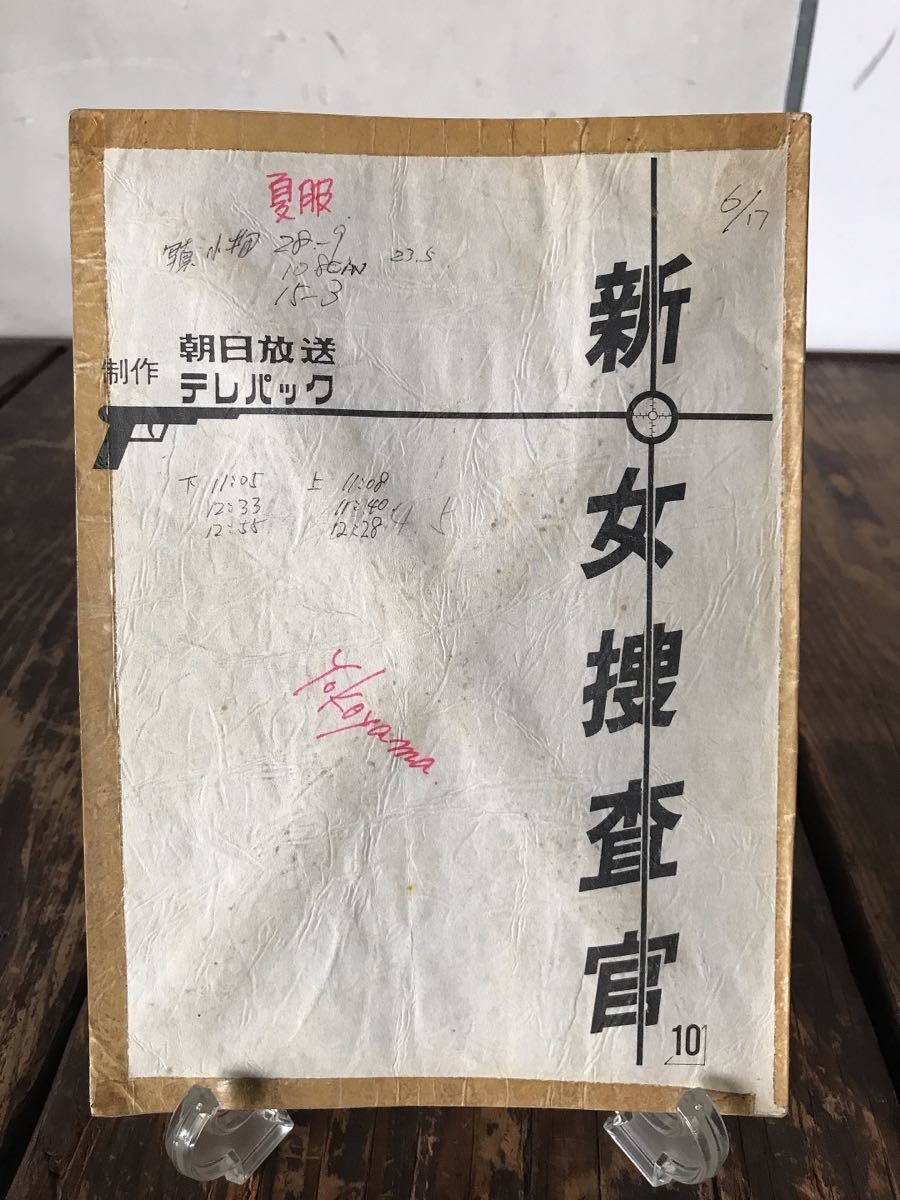 夏服
6/17
小物 28.-9
23.5
15-3
制作 朝日放送
テレパック
新女捜査官
下 11:05 上 11:08
12:33 11:40
12:55 12:28
4.5
Yokoyama.
10